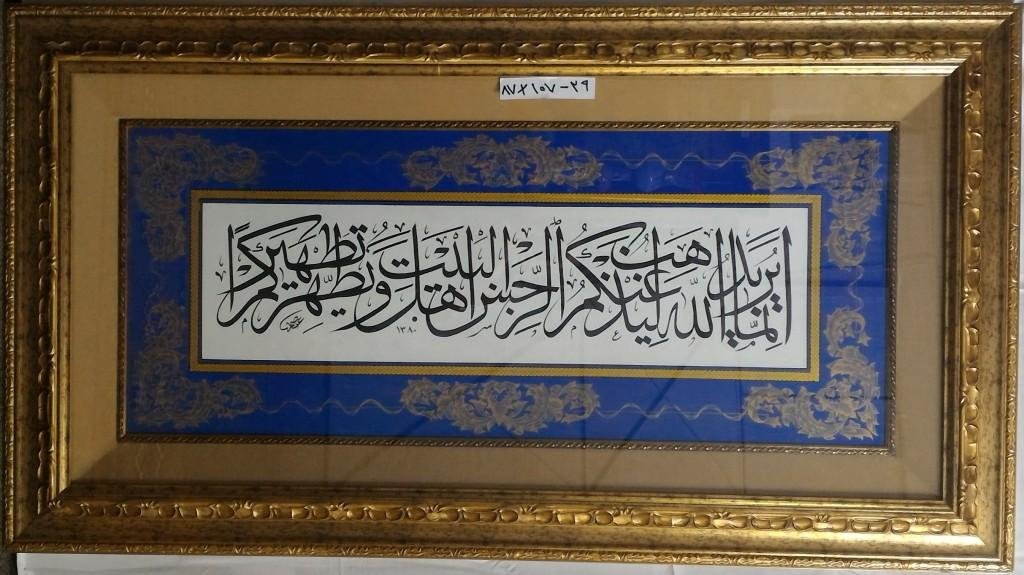 ۸۷×۱۰۷-۲۹
إنما يريد الله ليذهب عنكم الرجس أهل البيت ويطهركم تطهيرًا
۱۳۸۰